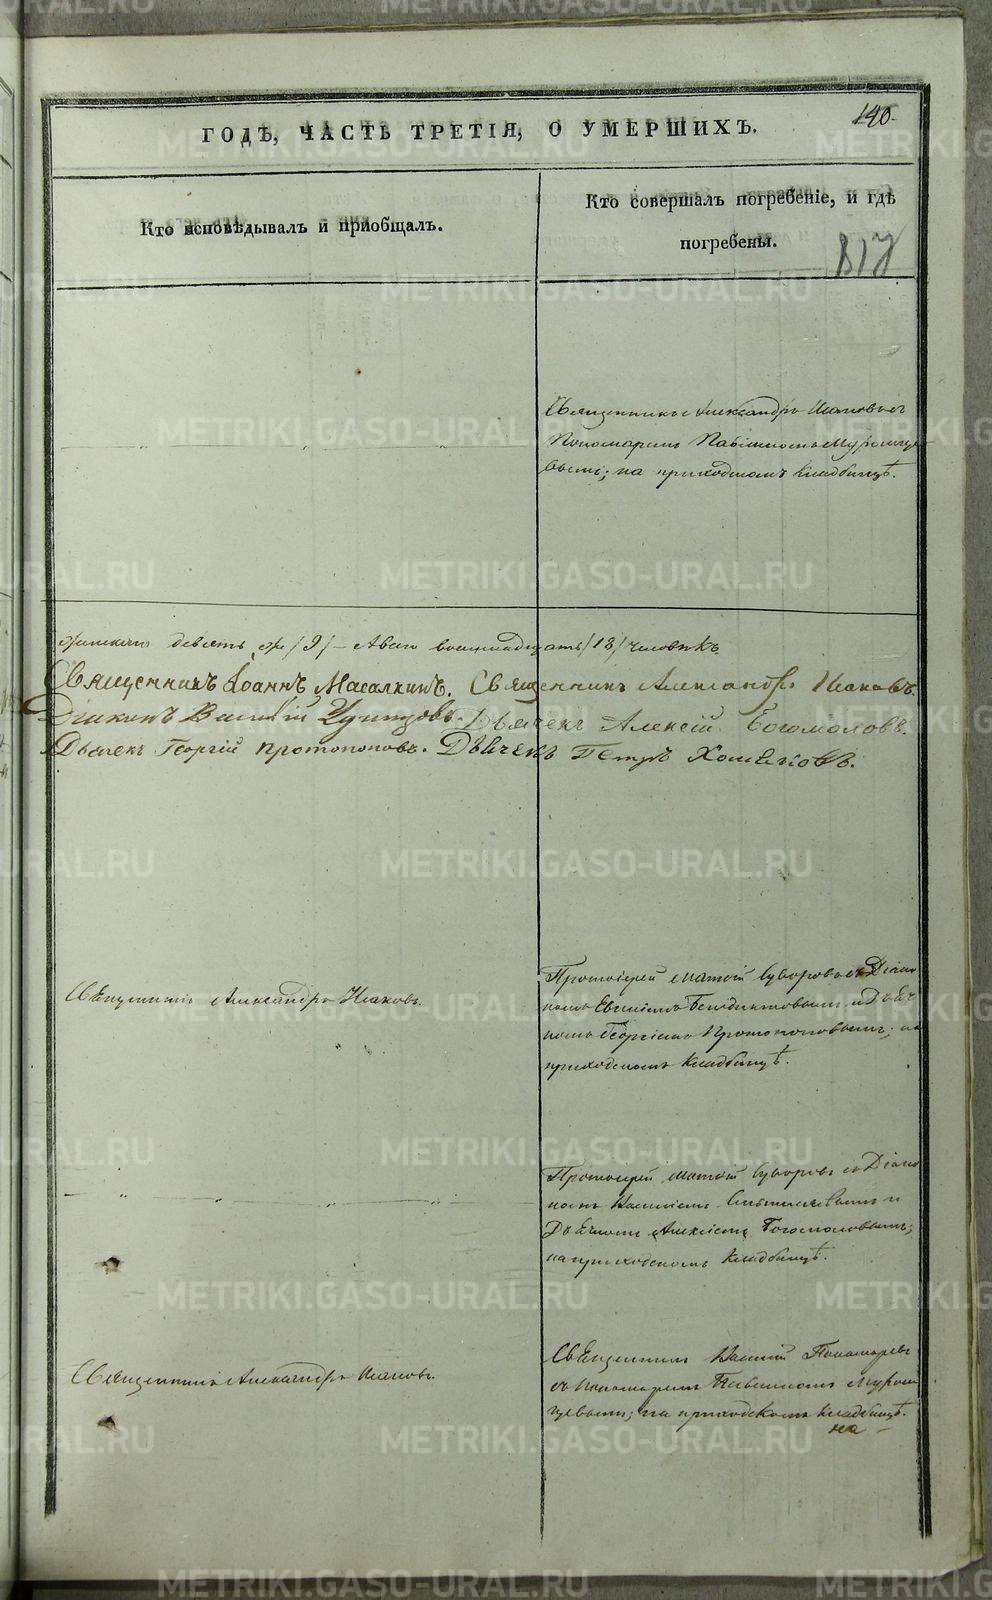 140.
ГОДѢ, ЧАСТЬ ТРЕТІЯ, О УМЕРШИХЪ.
Кто исповѣдывалъ и пріобщалъ.
Кто совершалъ погребеніе, и гдѣ
погребены.
817
Священникъ Александръ Исаковъ съ
Пономаремъ
вымъ; на приходскомъ кладбищѣ.
женска девять ж /9/ – А всего восемнадцать /18/ человѣкъ
Священникъ Іоаннъ Масалкинъ. Священникъ Александръ Исаковъ.
Діаконъ Василій Дьячекъ Алексій Богомоловъ.
Дьячекъ Георгій Протопоповъ. Дьячекъ Петръ Хомяковъ.
Священникъ Александръ Исаковъ.
Протоіерей Суворовъ съ Діако
номъ Евгеніемъ Бенедиктовымъ и Дьяч
комъ Георгіемъ Протопоповымъ; на
приходскомъ кладбищѣ.
Протоіерей Суворовъ съ Діако
номъ Василіемъ и
Дьячкомъ Алексіемъ Богомоловымъ;
на приходскомъ кладбищѣ.
Священникъ Александръ Исаковъ.
Священникъ Василій Пономаревъ
съ Пономаремъ
цевымъ; на приходскомъ кладбищѣ.
на
METRIKI.GASO-URAL.RU